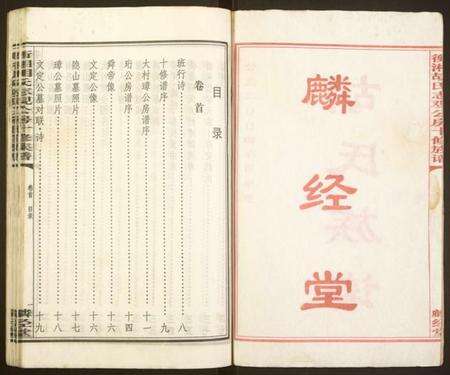 麟经堂
麟经堂
目录
卷首
班行诗……八
十修谱序……九
大村璋公房谱序……十一
珩公房谱序……十四
舜帝像……十六
文定公像……十六
隐山墓照片……十七
璋公墓照片……十八
文定公墓对联·诗……十九
卷首 目录
一
麟经堂